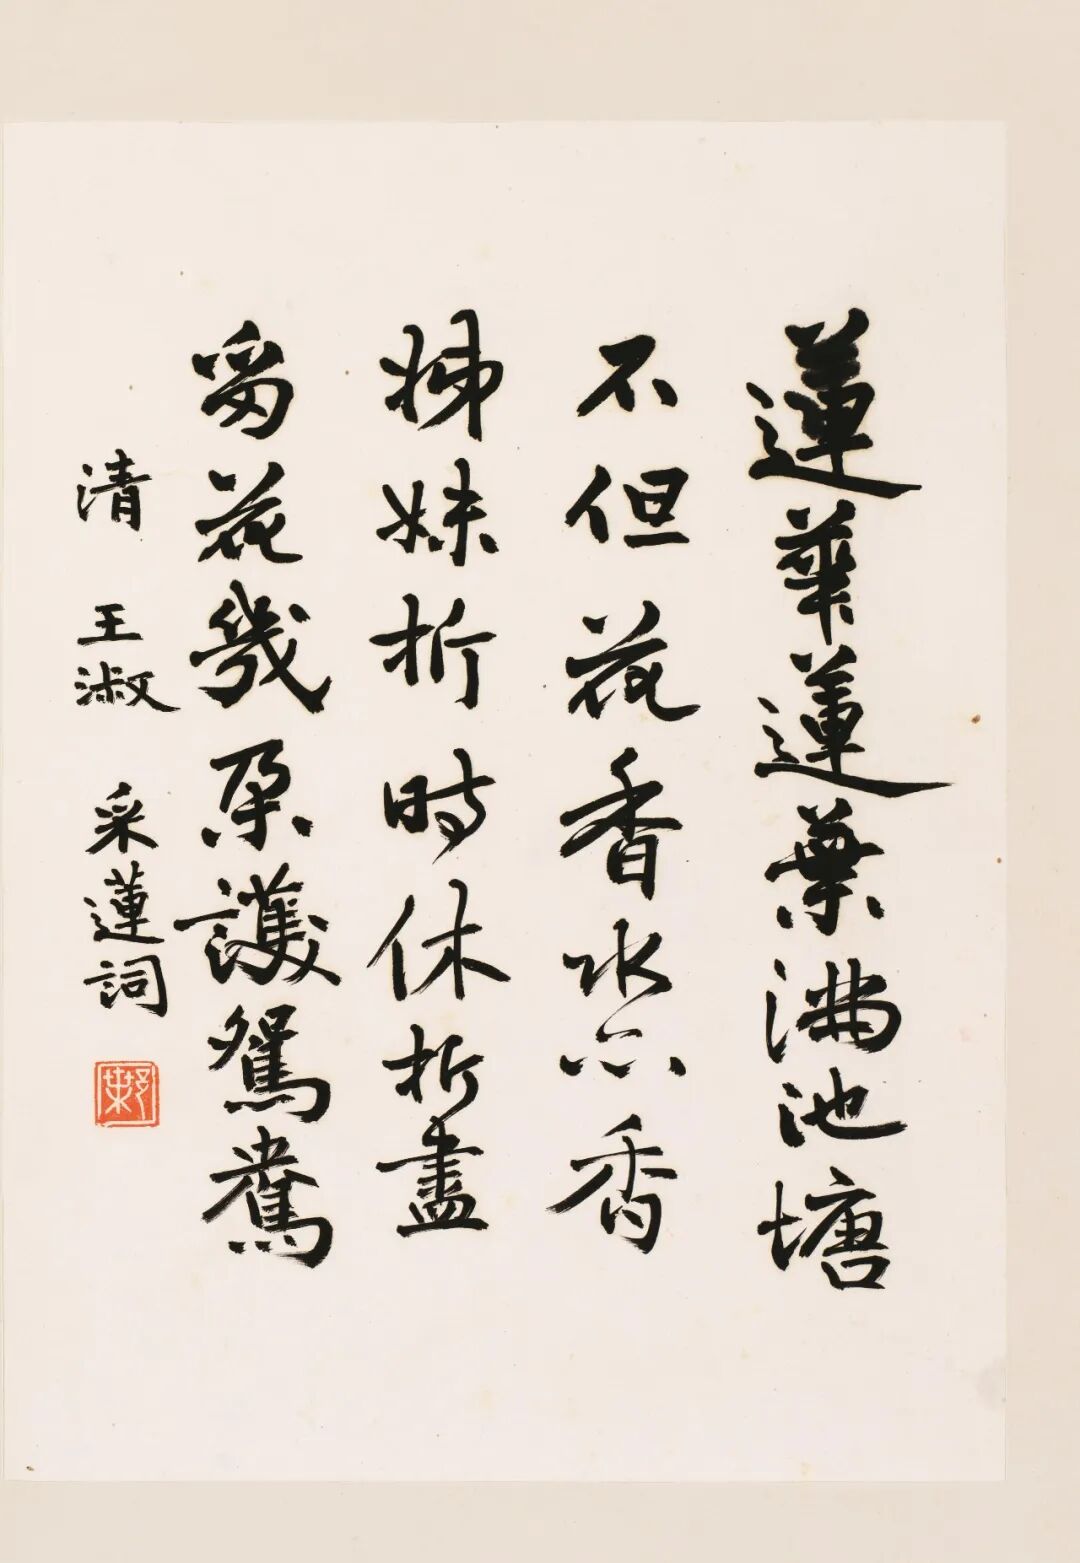 蓮華蓮葉滿池塘
不但花香水亦香
姊妹折時休折盡
留花幾朵護鴛鴦
清 王淑 采蓮詞